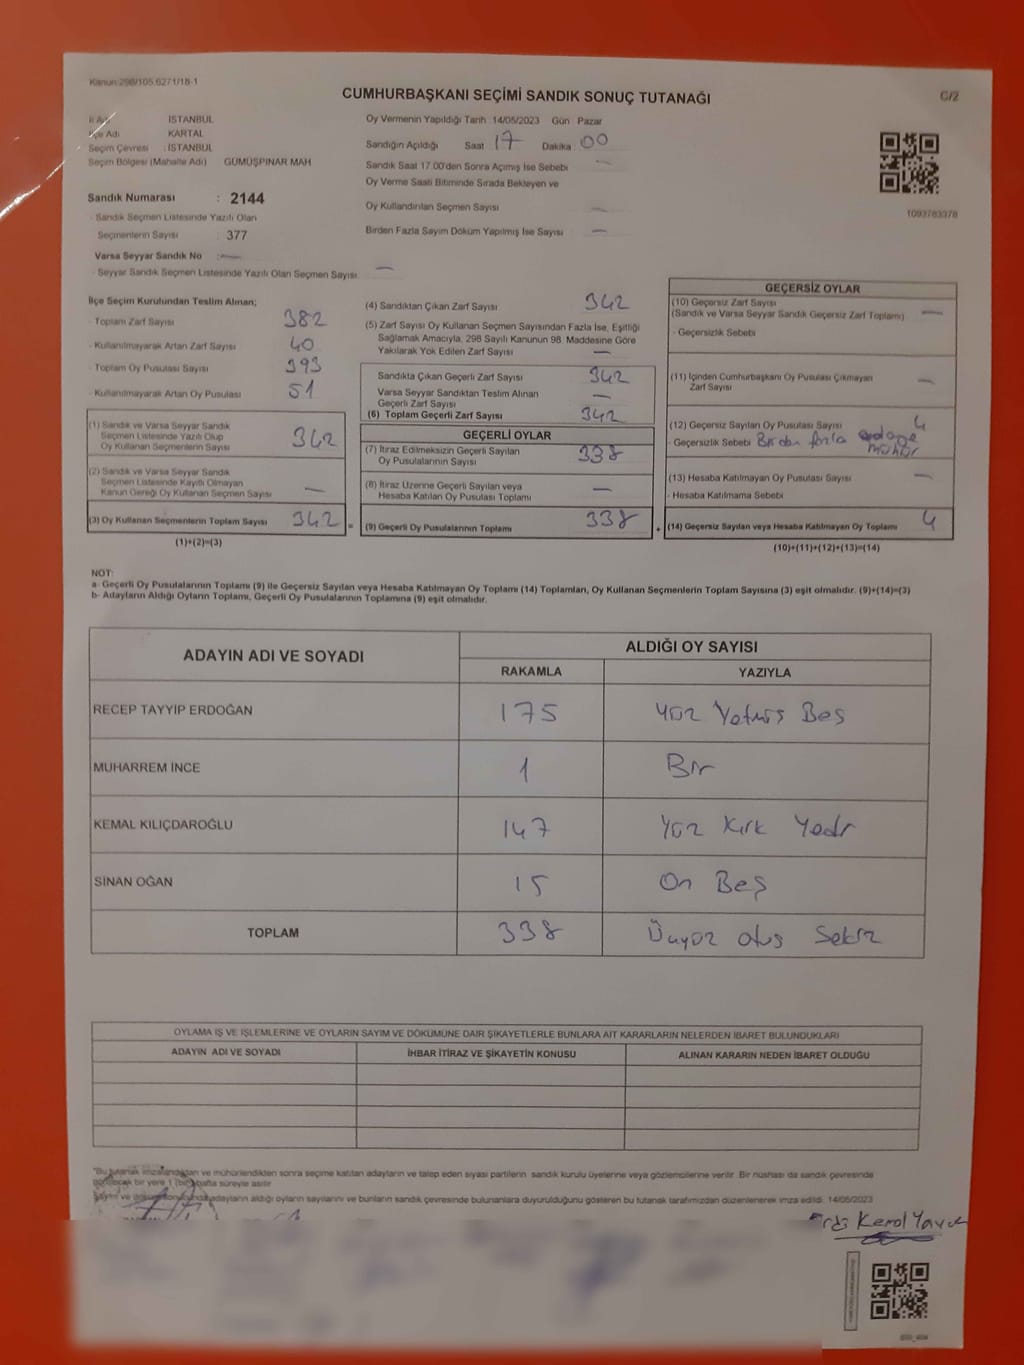 Kanun:298/105.6271/18-1
CUMHURBAŞKANI SEÇİMİ SANDIK SONUÇ TUTANAĞI
C/2
İl Adı : İSTANBUL
İlçe Adı : KARTAL
Seçim Çevresi : İSTANBUL
Seçim Bölgesi (Mahalle Adı) GÜMÜŞPINAR MAH
Sandık Numarası : 2144
- Sandık Seçmen Listesinde Yazılı Olan
Seçmenlerin Sayısı : 377
Varsa Seyyar Sandık No : —
- Seyyar Sandık Seçmen Listesinde Yazılı Olan Seçmen Sayısı: —
Oy Vermenin Yapıldığı Tarih :14/05/2023 Gün : Pazar
Sandığın Açıldığı Saat : 17 Dakika : 00
Sandık Saat 17.00'den Sonra Açımış İse Sebebi —
Oy Verme Saati Bitiminde Sırada Bekleyen ve
Oy Kullandırılan Seçmen Sayısı —
Birden Fazla Sayım Döküm Yapılmış İse Sayısı —
1093783378
İlçe Seçim Kurulundan Teslim Alınan;
- Toplam Zarf Sayısı : 382
- Kullanılmayarak Artan Zarf Sayısı : 40
- Toplam Oy Pusulası Sayısı : 393
- Kullanılmayarak Artan Oy Pusulası : 51
(1) Sandık ve Varsa Seyyar Sandık
Seçmen Listesinde Yazılı Olup
Oy Kullanan Seçmenlerin Sayısı : 342
(2) Sandık ve Varsa Seyyar Sandık
Seçmen Listesinde Kayıtlı Olmayan
Kanun Gereği Oy Kullanan Seçmen Sayısı : —
(3) Oy Kullanan Seçmenlerin Toplam Sayısı : 342 =
(1)+(2)=(3)
(4) Sandıktan Çıkan Zarf Sayısı : 342
(5) Zarf Sayısı Oy Kullanan Seçmen Sayısından Fazla İse, Eşitliği
Sağlamak Amacıyla, 298 Sayılı Kanunun 98. Maddesine Göre
Yakılarak Yok Edilen Zarf Sayısı : —
Sandıkta Çıkan Geçerli Zarf Sayısı : 342
Varsa Seyyar Sandıktan Teslim Alınan
Geçerli Zarf Sayısı : —
(6) Toplam Geçerli Zarf Sayısı : 342
GEÇERLİ OYLAR
(7) İtiraz Edilmeksizin Geçerli Sayılan
Oy Pusulalarının Sayısı : 338
(8) İtiraz Üzerine Geçerli Sayılan veya
Hesaba Katılan Oy Pusulası Toplamı : —
(9) Geçerli Oy Pusulalarının Toplamı : 338 +
GEÇERSİZ OYLAR
(10) Geçersiz Zarf Sayısı
(Sandık ve Varsa Seyyar Sandık Geçersiz Zarf Toplamı) : —
- Geçersizlik Sebebi :
(11) İçinden Cumhurbaşkanı Oy Pusulası Çıkmayan
Zarf Sayısı : —
(12) Geçersiz Sayılan Oy Pusulası Sayısı : 4
- Geçersizlik Sebebi : Birden fazla
mühür
(13) Hesaba Katılmayan Oy Pusulası Sayısı : —
- Hesaba Katılmama Sebebi :
(14) Geçersiz Sayılan veya Hesaba Katılmayan Oy Toplamı : 4
(10)+(11)+(12)+(13)=(14)
NOT:
a- Geçerli Oy Pusulalarının Toplamı (9) ile Geçersiz Sayılan veya Hesaba Katılmayan Oy Toplamı (14) Toplamları, Oy Kullanan Seçmenlerin Toplam Sayısına (3) eşit olmalıdır. (9)+(14)=(3)
b- Adayların Aldığı Oyların Toplamı, Geçerli Oy Pusulalarının Toplamına (9) eşit olmalıdır.
ADAYIN ADI VE SOYADI
ALDIĞI OY SAYISI
RAKAMLA YAZIYLA
RECEP TAYYİP ERDOĞAN 175 Yüz Yetmiş Beş
MUHARREM İNCE 1 Bir
KEMAL KILIÇDAROĞLU 147 Yüz Kırk Yedi
SİNAN OĞAN 15 On Beş
TOPLAM 338 Üçyüz otuz Sekiz
OYLAMA İŞ VE İŞLEMLERİNE VE OYLARIN SAYIM VE DÖKÜMÜNE DAİR ŞİKAYETLERLE BUNLARA AİT KARARLARIN NELERDEN İBARET BULUNDUKLARI
ADAYIN ADI VE SOYADI İHBAR İTİRAZ VE ŞİKAYETİN KONUSU ALINAN KARARIN NEDEN İBARET OLDUĞU
*Bu tutanak imzalandıktan ve mühürlendikten sonra seçime katılan adayların ve talep eden siyasi partilerin sandık kurulu üyelerine veya gözlemcilerine verilir. Bir nüshası da sandık çevresinde
görülecek bir yere 1 (bir) hafta süreyle asılır.
Sayım ve döküm sonucunda adayların aldığı oyların sayılarını ve bunların sandık çevresinde bulunanlara duyurulduğunu gösteren bu tutanak tarafımızdan düzenlenerek imza edildi. 14/05/2023
Kemal